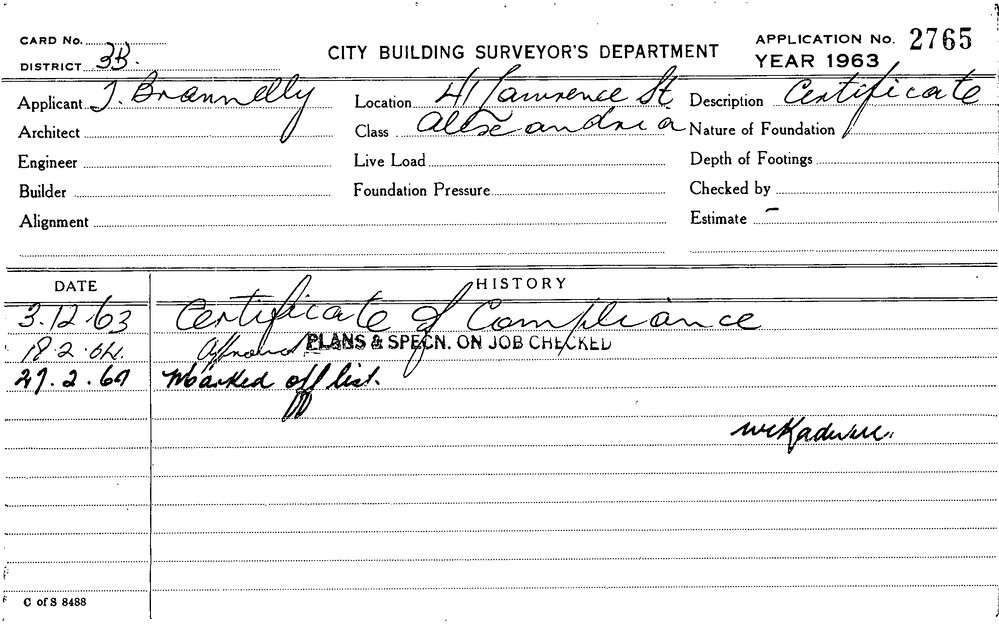 CARD No.
DISTRICT 3B.
CITY BUILDING SURVEYOR'S DEPARTMENT
APPLICATION No. 2765
YEAR 1963
Applicant J. Brannelly
Location 41 Lawrence St
Description Certificate
Architect
Class Alexandria
Nature of Foundation
Engineer
Live Load
Depth of Footings
Builder
Foundation Pressure
Checked by
Alignment
Estimate –
DATE HISTORY
3.12.63 Certificate of Compliance
18.2.64. Approved PLANS & SPECN. ON JOB CHECKED
27.2.64 Marked off list.
C of S 8488